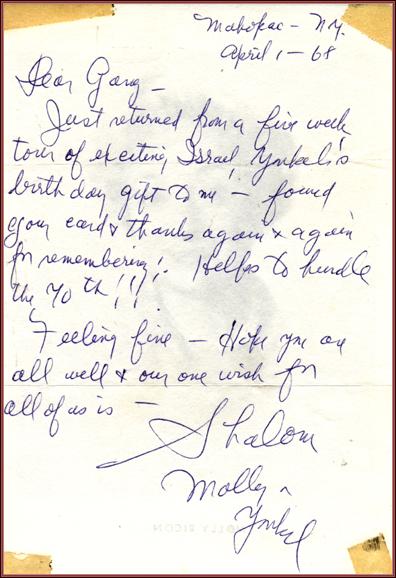 Mahopac - N.Y.
April 1 - 68
Dear Gang -
Just returned from a five week
tour of exciting Israel, Yonkel's
birthday gift to me - found
your card & thanks again & again
for remembering! Helps to hurdle
the 70th!!!
Feeling fine - Hope you are
all well & our one wish for
all of us is -
Shalom
Molly &
Yonkel
MOLLY PICON